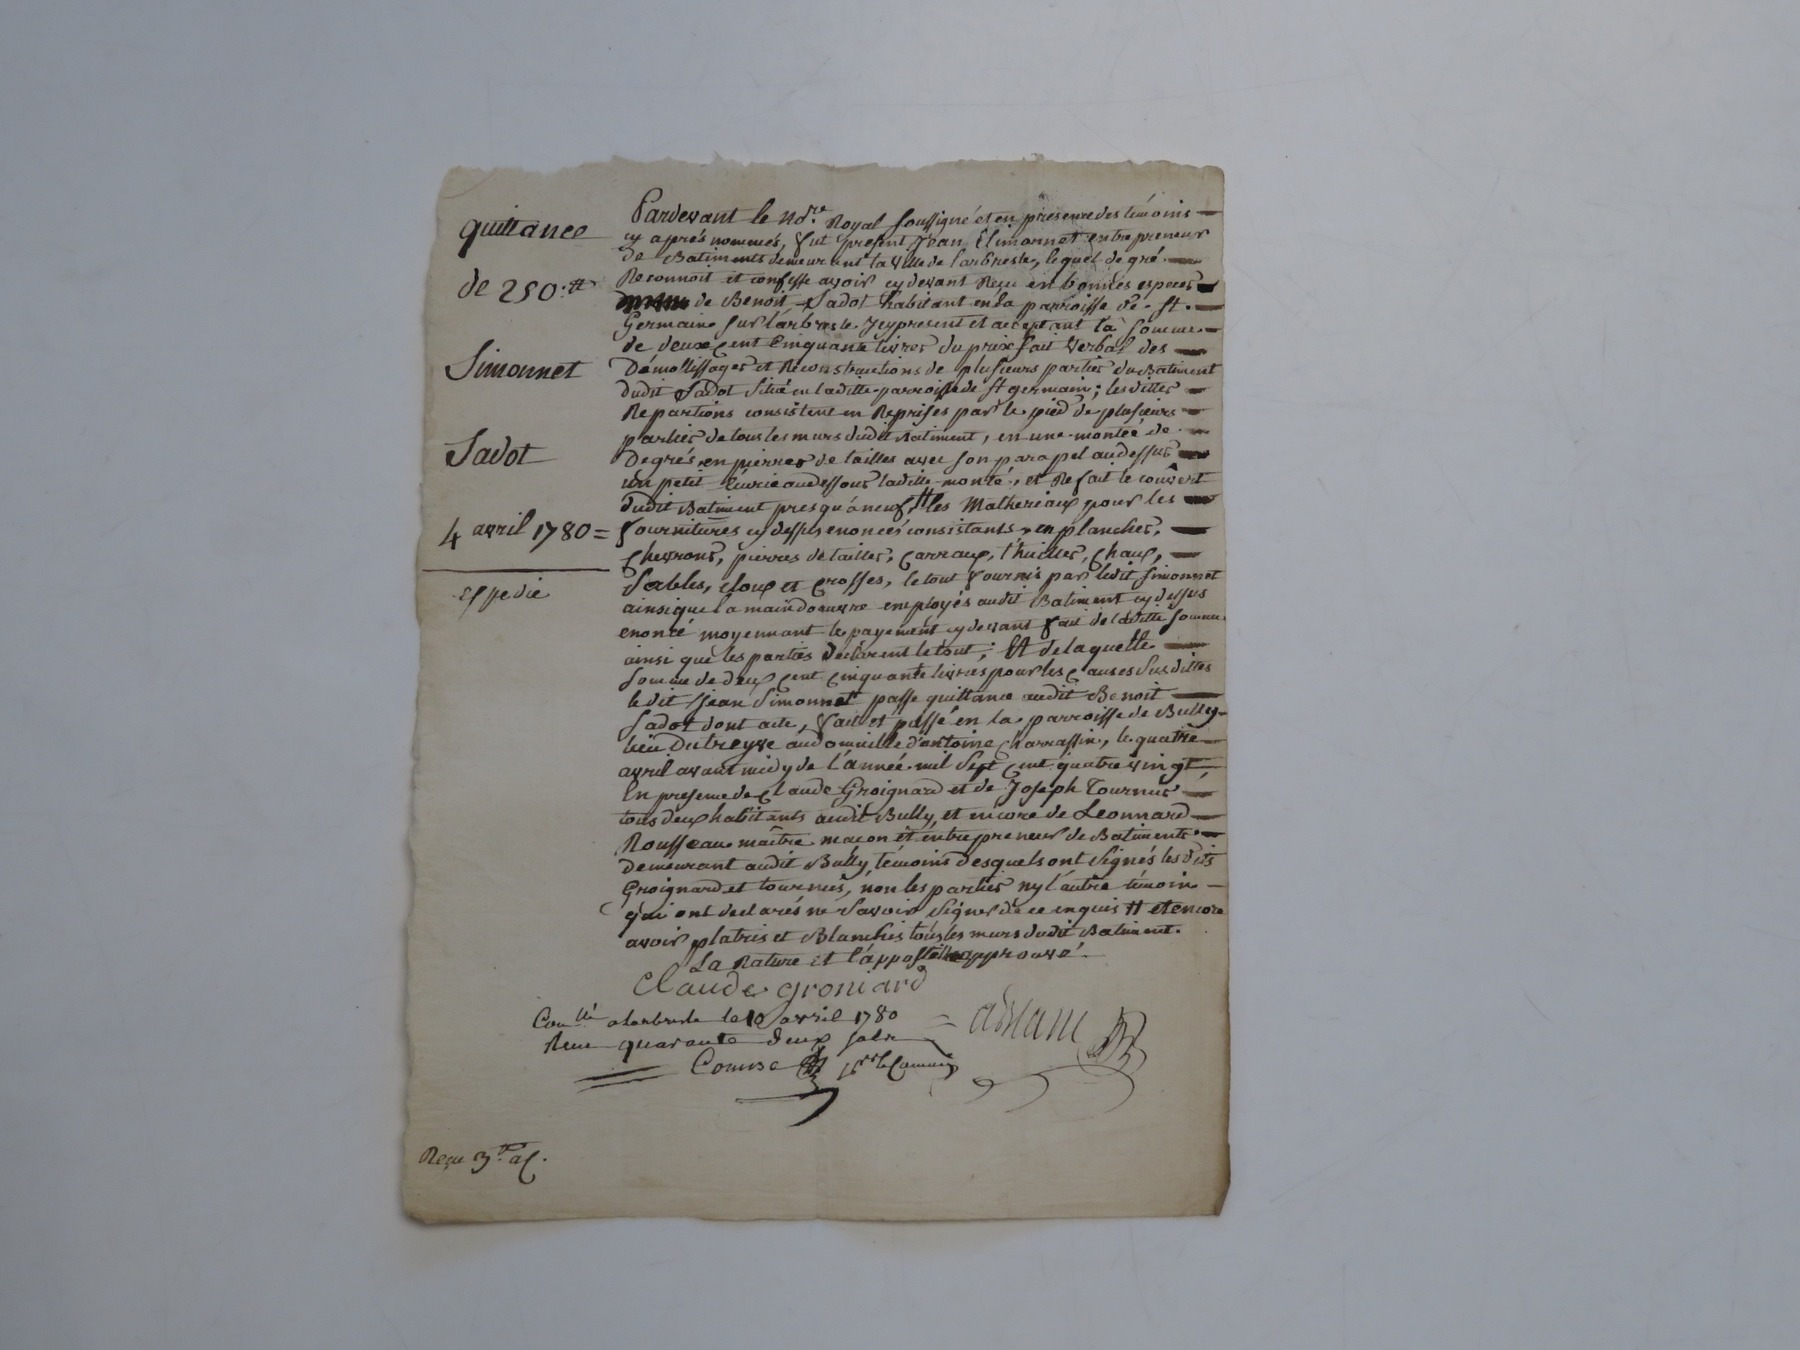 quittance
de 250 ₶
Simonnet
Sadot
4 avril 1780 =
expedié
Pardevant le No.re Royal soussigné et en presence des temoins
cy aprés nommés, fut present Jean Simonnet entrepreneur
de Batiments demeurant la ville de Larbresle, lequel de gré
Reconnoit et confesse avoir cy devant Reçu en bonnes especes
de Benoit Sadot habitant en la parroisse de St.
Germain sur l'arbresle Jcy present et acceptant la somme
de deux cent Cinquante livres du prix fait verbal des
Démollissages et Reconstructions de plusieurs parties du Batiment
dudit Sadot Situé en laditte parroisse de St germain; lesdittes
Repartions consistent en Reprises par le pied de plusieurs
parties de tous les murs dudit Batiment, en une montée de
degrés en pierres de tailles avec son parapel audessus
un petit écurie audessous laditte monté, et Refait le couvert
dudit Batiment presqu'áneuf, # les Matheriaux pour les
fournitures cy dessus enoncés consistants, en planches,
chevrons, pierres de tailles, carraux, thuilles, chaux,
Sables, cloux et crosses, le tout fournis par ledit Simonnet
ainsi que la maindoeuvre employés audit Batiment cy dessus
enoncé moyennant le payement cy devant fait de laditte somme
ainsi que les parties declarent le tout; Et de laquelle
somme de deux cent cinquante livres pour les causes Susdittes
ledit Jean Simonnet passe quittance audit Benoit
Sadot dont acte, fait et passé en la parroisse de Bully
lieu Dutreyve au domicille d'antoine charrassin, le quatre
avril avant midy de l'année mil Sept cent quatre vingt,
En presence de Claude Groignard et de Joseph Tournus
tous deux habitants audit Bully, et encore de Leonnard
Rousseau maître maçon et entrepreneur de Batiments
demeurant audit Bully, témoins desquels ont Signés lesdits
Groignard et tournus, non les parties ny l'autre témoin
qui ont declarés ne Savoir Signer de ce enquis # et encore
avoir platris et Blanchis tous les murs dudit Batiment.
La Rature et l'appostille approuvé
Claude groniard
Con.llé a larbresle le 10 avril 1780
Recu quarante deux sols
Combe
Reçu 3 ₶